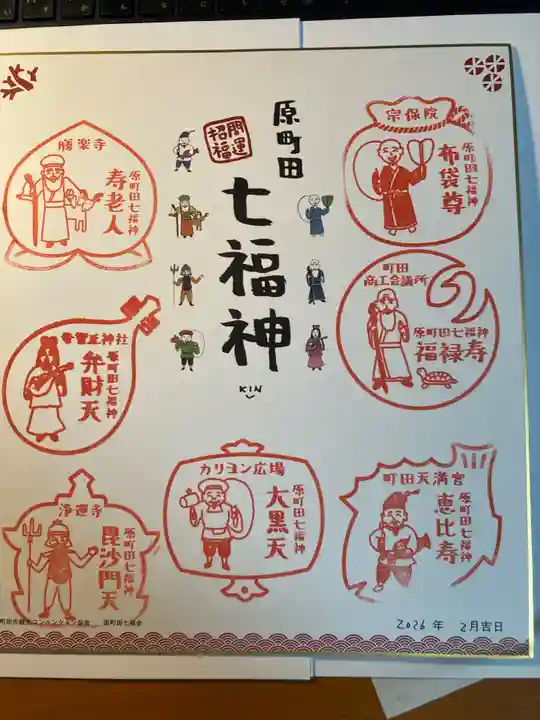 原町田
開運
招福
七福神
KIN
勝楽寺
原町田七福神
寿老人
宗保院
原町田七福神
布袋尊
町田
商工会議所
原町田七福神
福禄寿
神社
原町田七福神
弁財天
カリヨン広場
原町田七福神
大黒天
浄運寺
原町田七福神
毘沙門天
町田天満宮
原町田七福神
恵比寿
町田市観光コンベンション協会 原町田七福会
2026年 2月吉日